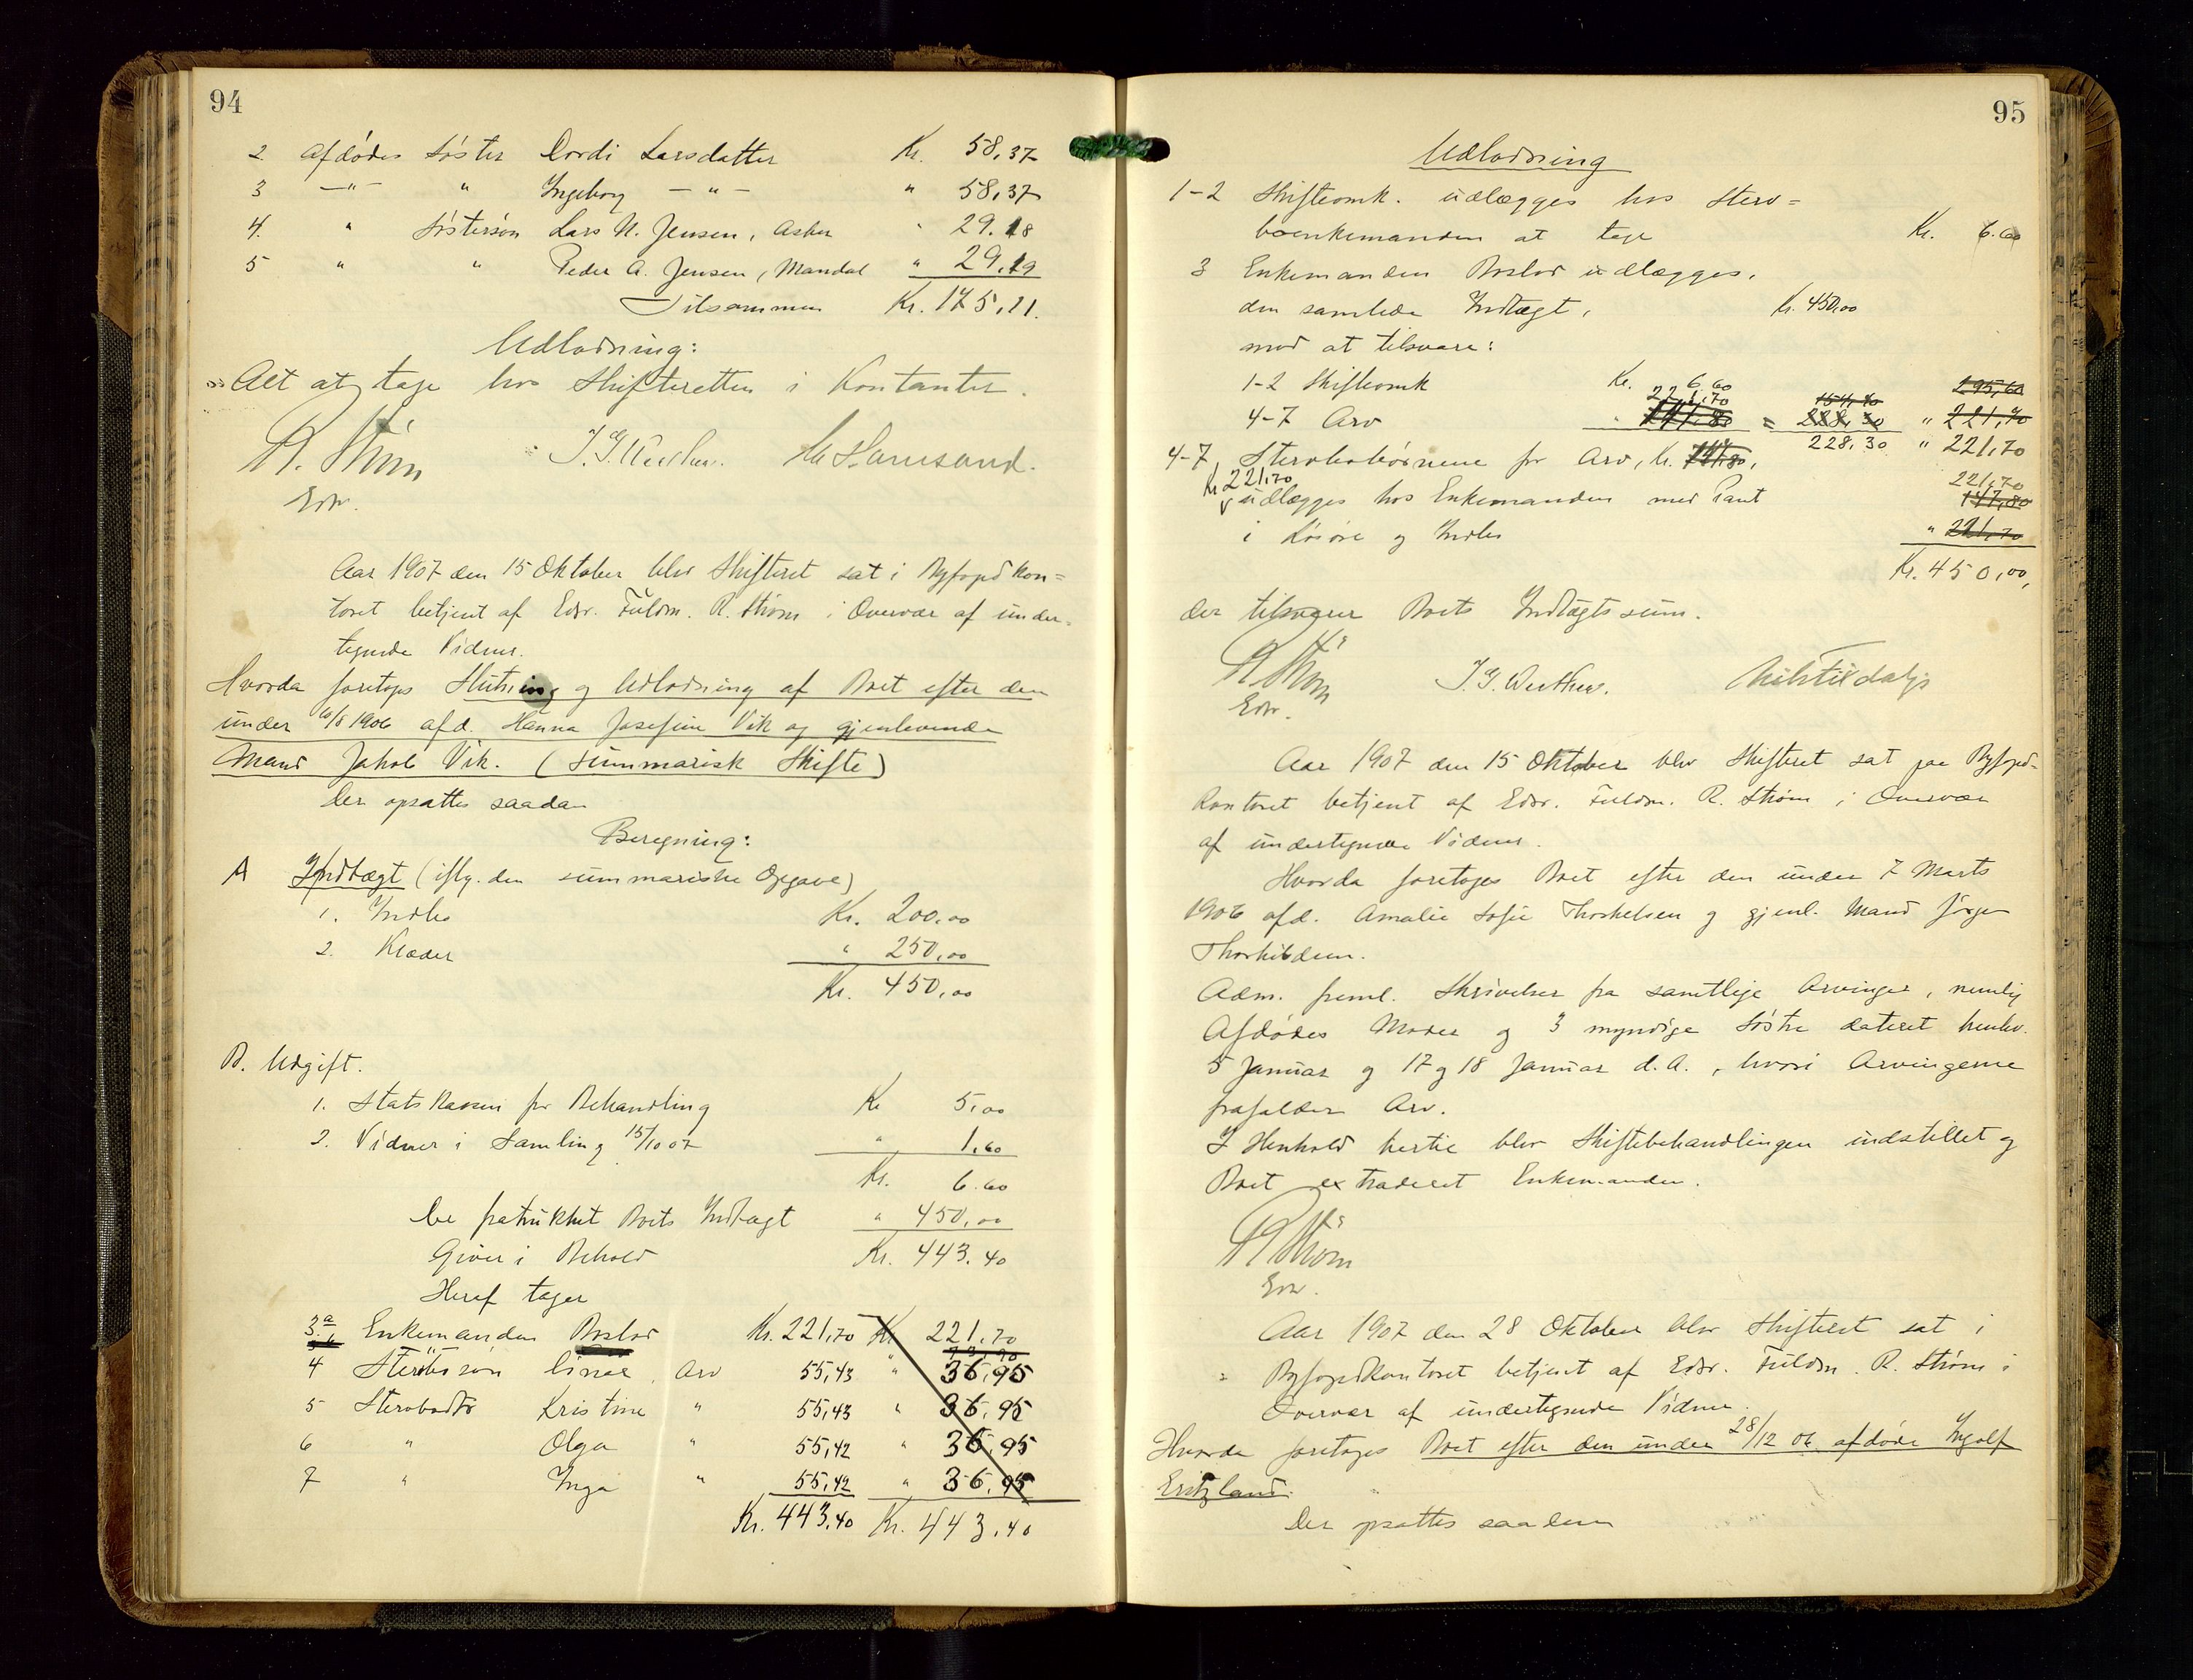 94
2. Afdødes Søster Dordi Larsdatter Kr. 58,37
3 —"— " Ingeborg —"— " 58,37
4. " Søstersøn Lars N. Jensen, Asker " 29.18
5 " " Peder A. Jensen, Mandal " 29,19
Tilsammen Kr. 175,11.
Udlodning:
Alt at tage hos Skifteretten i Kontanter.
R. Strøm
Edsv.
Aar 1907 den 15 Oktober blev Skifteret sat i Byfogdkon=
toret betjent af Edsv. Fuldm. R. Strøm i Overvær af under-
tegnede Vidner.
Hvorda foretoges Slutning og Udlodning af Boet efter den
under 10/8 1906 afd. Hanna Josefine Vik og gjenlevende
Mand Jakob Vik. (Summarisk Skifte)
Der opsattes saadan
Beregning:
A Indtægt (iflg. den summariske Opgave)
1. Indbo Kr. 200,00
2. Klæder " 250,00
Kr. 450,00
B. Udgift.
1. Statskassen for Behandling Kr 5,00
2. Vidner i Samling 15/10 07 " 1,60
Kr. 6.60
De fratrukket Boets Indtægt " 450,00
Giver i Behold Kr. 443.40
Heraf tager
3 a Enkemanden Boslod Kr. 221,70 Kr 221,70
4 Stervbosøn Arv 55,43 " 36,95
5 Stervbodtr Kristine " 55,43 " 36,95
6 " Olga " 55,42 " 36,95
7 " Inga " 55,42 " 36,95
Kr. 443,40 Kr. 443,40
95
Udlodning
1-2 Skifteomk. udlægges hos Sterv=
boenkemanden at tage Kr. 6.60
3 Enkemanden Boslod udlægges,
den samlede Indtægt, Kr. 450,00
mod at tilsvare:
1-2 Skifteomk Kr. 6,60 295,60
221,70 151,40
4-7 Arv = 228,30 " 221,70
228,30 " 221,70
4-7 Stervbobørnene for Arv, Kr. 147,80,
Kr 221,70 221,70
udlægges hos Enkemanden med Pant 147,80
i Løsøre og Indbo " 221,70
Kr. 450,00,
der tilsvarer Boets Indtægtssum.
R Strøm
Edsv.
Aar 1907 den 15 Oktober blev Skifteret sat paa Byfogd=
kontoret betjent af Edsv. Fuldm. R. Strøm i Overvær
af undertegnede Vidner.
Hvorda foretoges Boet efter den under 7 Marts
1906 afd. Amalie Sofie Thorkelsen og gjenl. Mand Jørgen
Adm. freml. Skrivelser fra samtlige Arvinger, nemlig
Afdødes Moder og 3 myndige Søstre dateret henhv.
5 Januar og 17 og 18 Januar d.A., hvori Arvingerne
frafalder Arv.
I Henhold hertil blev Skiftebehandlingen indstillet og
Boet extraderet Enkemanden.
R Strøm
Edsv.
Aar 1907 den 28 Oktober blev Skifteret sat i
Byfogdkontoret betjent af Edsv. Fuldm. R. Strøm i
Overvær af undertegnede Vidner.
Hvorda foretoges Boet efter den under 28/12 06 afdøde Ingolf
Der opsattes saadan